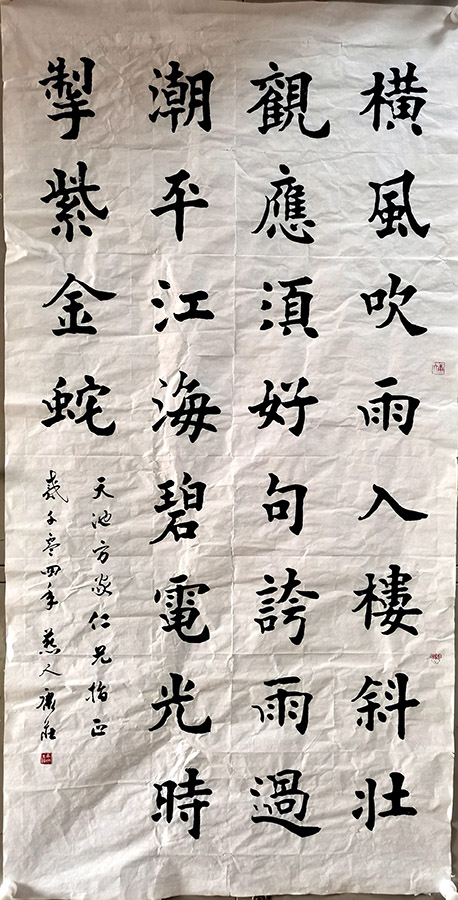 橫風吹雨入樓斜壯
觀應須好句誇雨過
潮平江海碧電光時
掣紫金蛇
天池方家仁兄指正
歲千零四年 燕人康莊